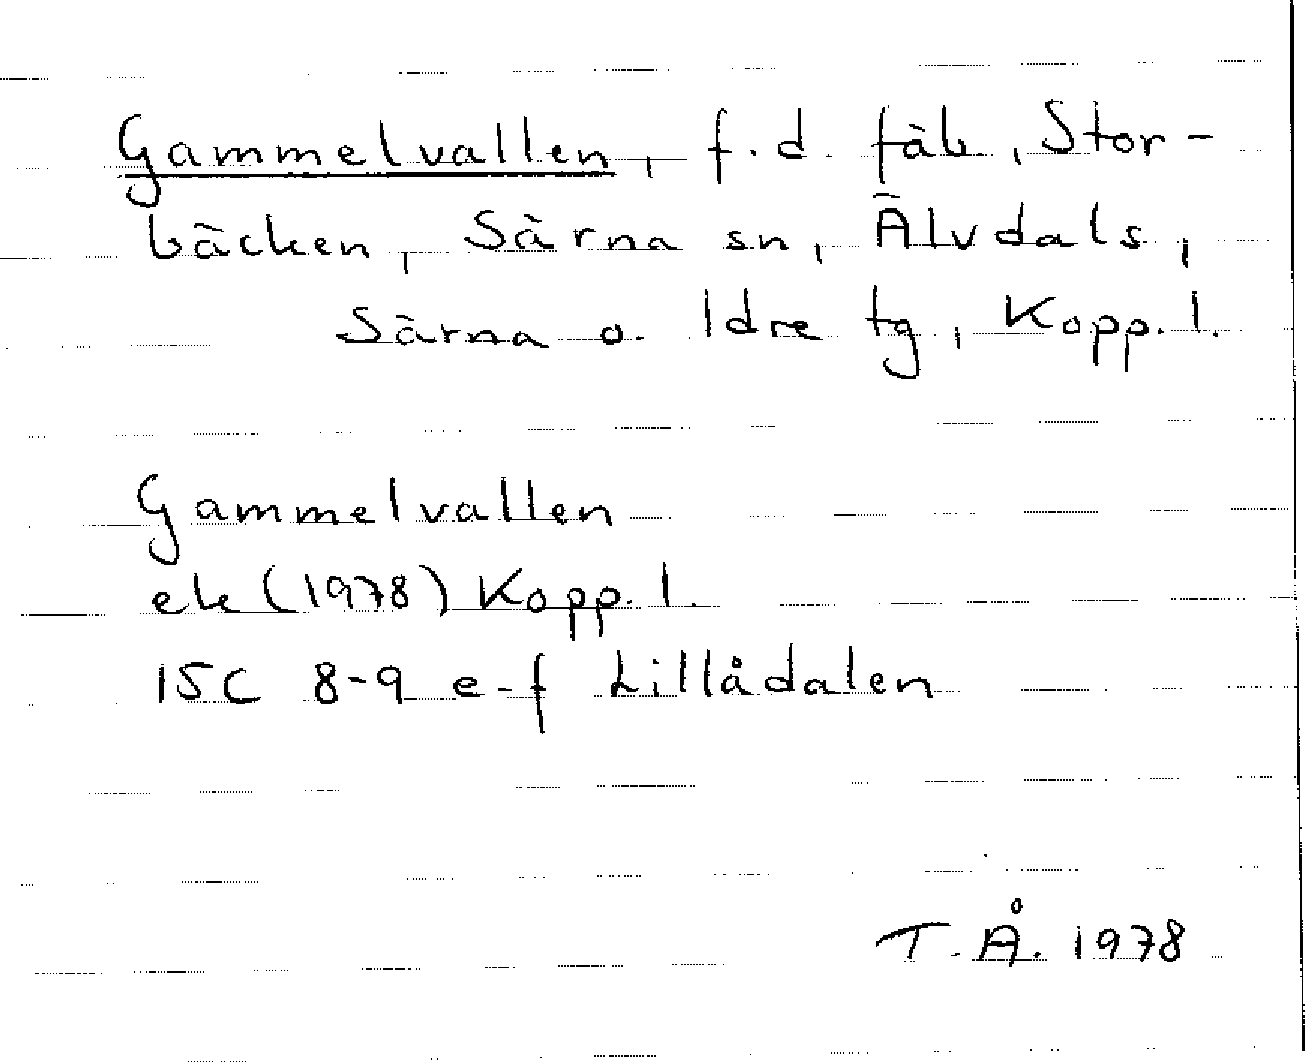 Gammelvallen, f.d. fäb, Stor-
bäcken, Särna sn, Älvdals,
Särna o. Idre tg, Kopp. l.
Gammelvallen
ek (1978) Kopp. l.
15C 8-9 e-f Lillådalen
T. Å. 1978